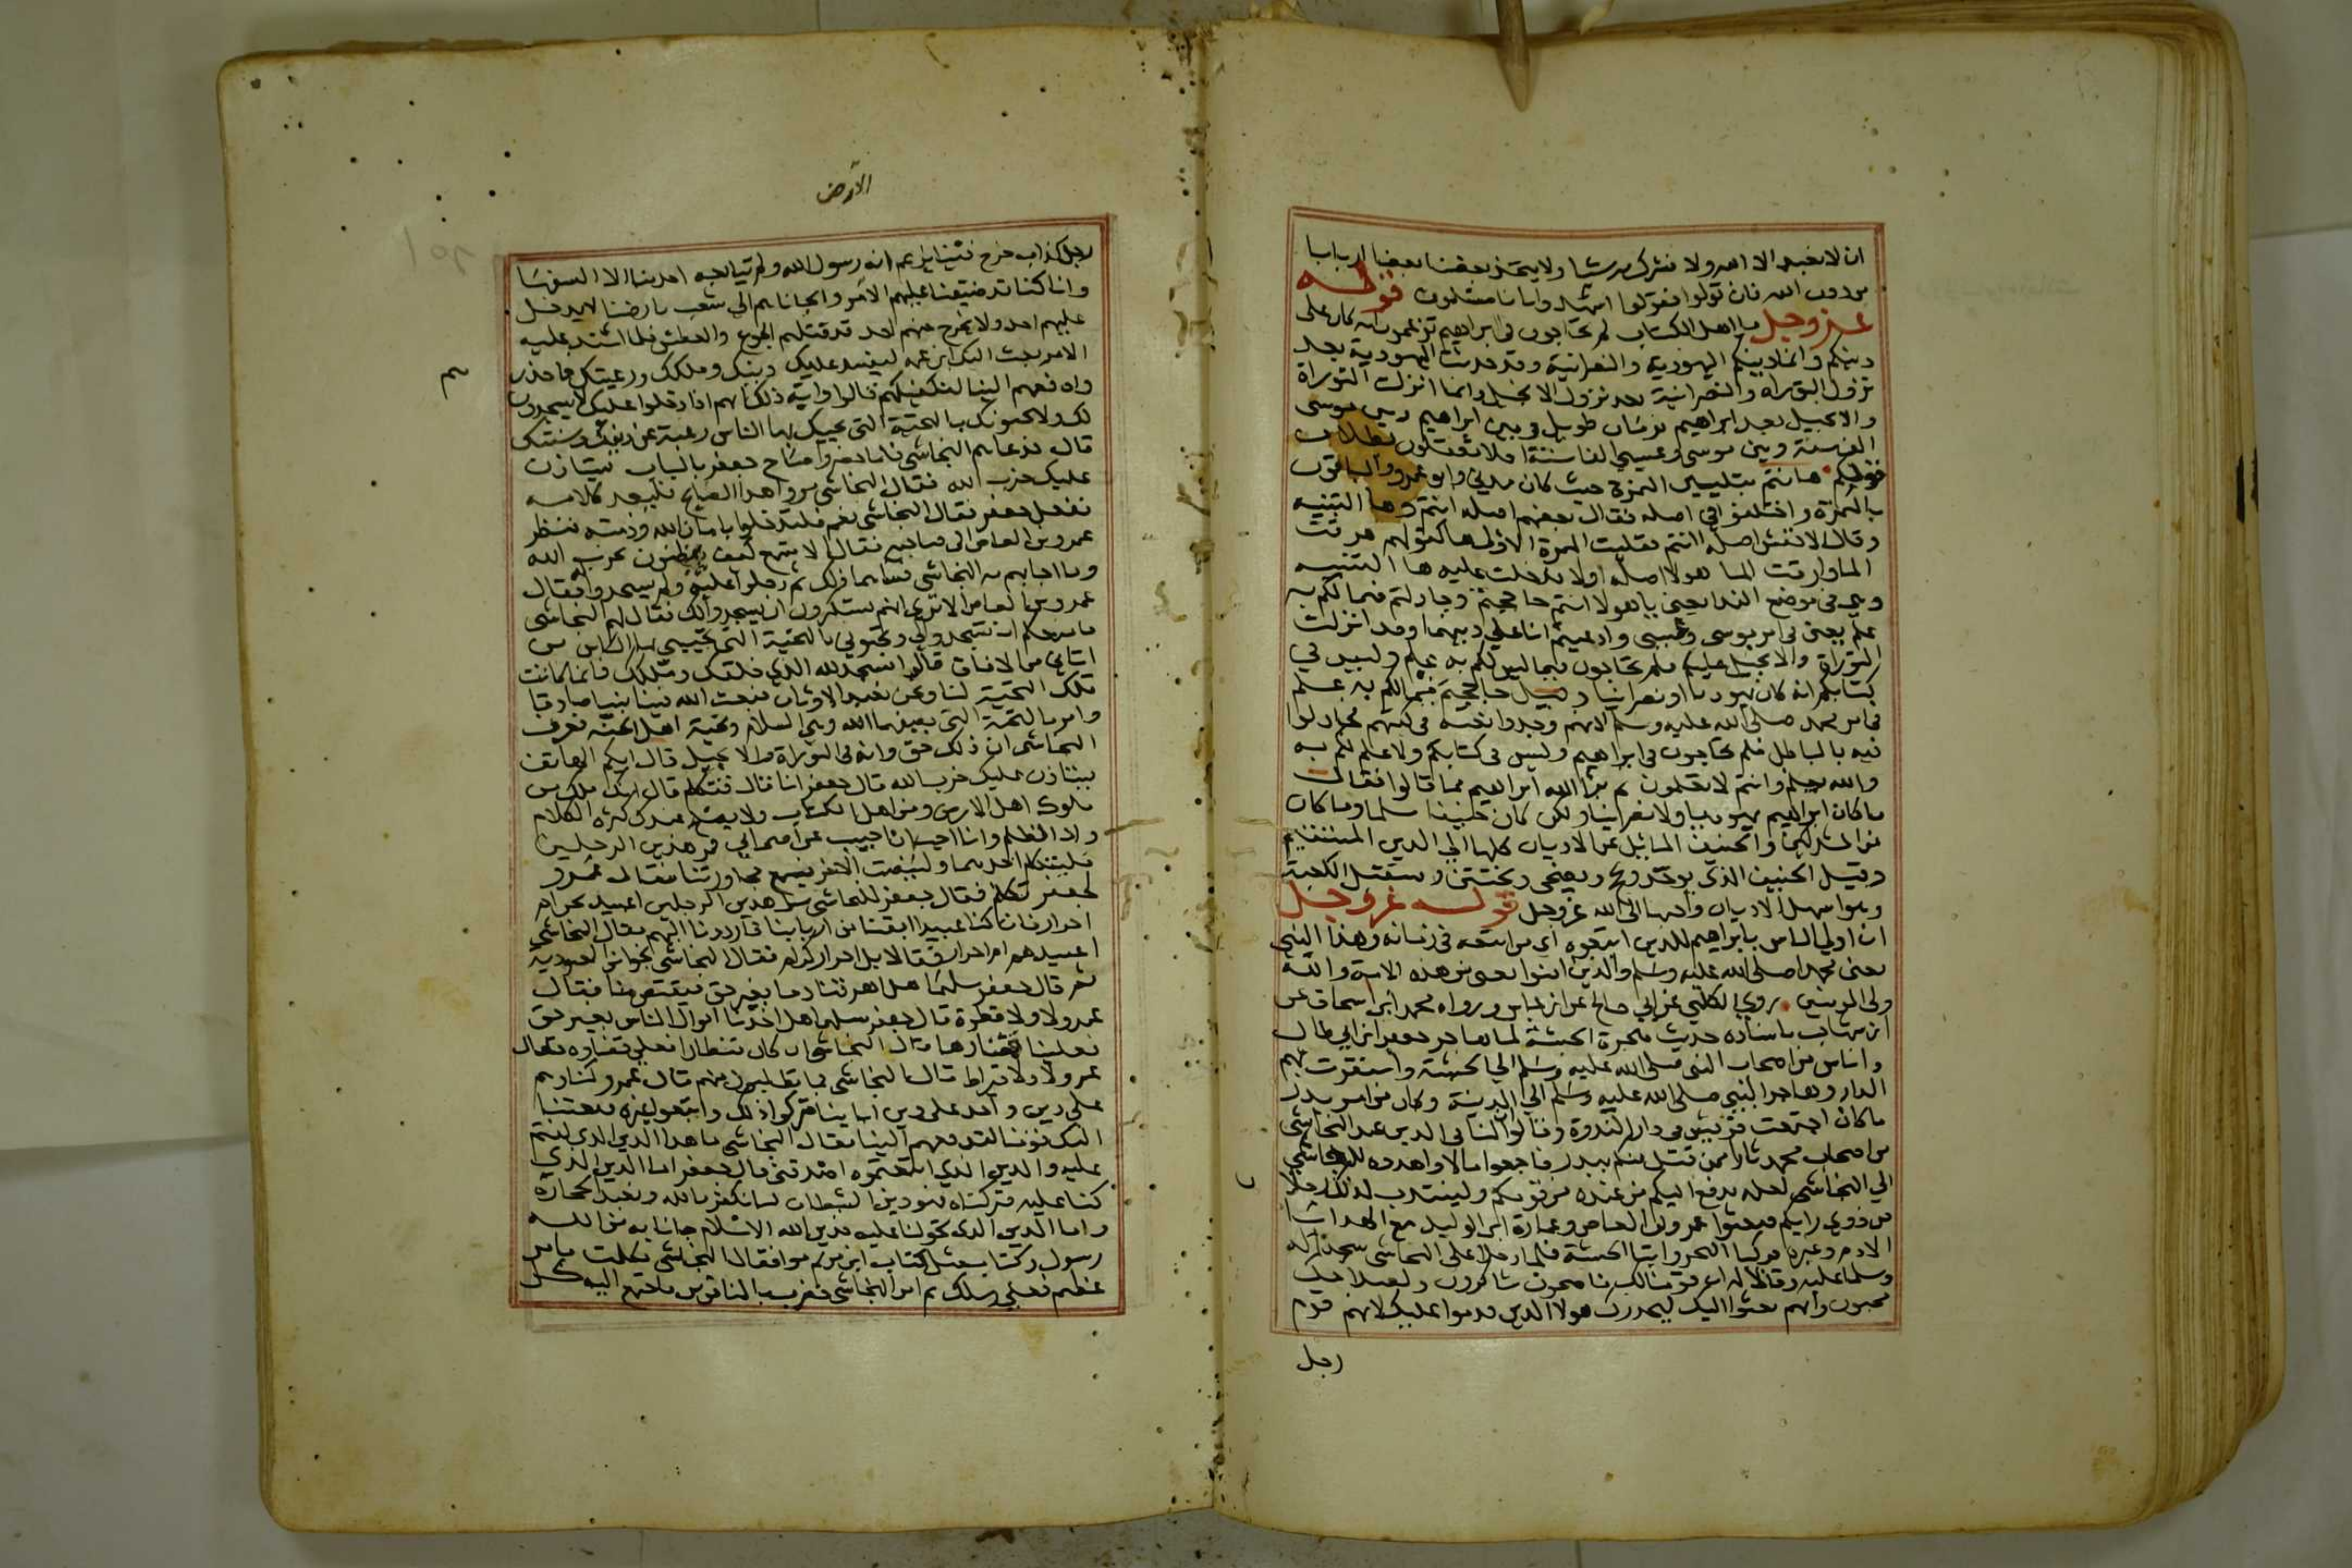 ان لا نعبد الا الله ولا نشرك به شيا ولا يتخذ بعضنا بعضا اربابا
من دون الله فان تولوا فقولوا اشهدوا بانا مسلمون قوله
عز وجل يا اهل الكتاب لم تحاجون في ابراهيم تزعمون انه كان على
دينكم وانما دينكم اليهودية والنصرانية وقد حدثت اليهودية بعد
نزول التوراة والنصرانية بعد نزول الانجيل وانما انزلت التوراة
والانجيل بعد ابراهيم بزمان طويل وبين ابراهيم وبين موسى
الف سنة وبين موسى وعيسى الفا سنة افلا تعقلون بطلان
قولكم ها انتم بتليين الهمزة حيث كان مدني وابو عمرو والباقون
بالهمزة واختلفوا في اصله فقال بعضهم اصله انتم وها التنبيه
وقال الاخفش اصله اانتم فقلبت الهمزة الاولى ها كقولهم هرقت
الماء وارقت الماء هولا اصله اولا دخلت عليه ها التنبيه
وهي في موضع الندا يعني يا هولا انتم حاججتم وجادلتم فيما لكم به
علم يعني في امر موسى وعيسى وادعيتم انا على دينهما وقد انزلت
التوراة والانجيل عليكم فلم تحاجون فيما ليس لكم به علم وليس في
كتابكم انه كان يهوديا او نصرانيا وقيل حاججتم فيما لكم به علم
في امر محمد صلى الله عليه وسلم لانهم وجدوا نعته في كتبهم فجادلوا
فيه بالباطل فلم تحاجون في ابراهيم وليس في كتابكم ولا علم لكم به
والله يعلم وانتم لا تعلمون ثم برأ الله ابراهيم مما قالوا فقال
ما كان ابراهيم يهوديا ولا نصرانيا ولكن كان حنيفا مسلما وما كان
من المشركين والحنيف المائل عن الاديان كلها الى الدين المستقيم
وقيل الحنيف الذي يوحد ويحج ويضحي ويختتن ويستقبل الكعبة
وهو اسهل الاديان واحبها الى الله عز وجل قوله عز وجل
ان اولى الناس بابراهيم للذين اتبعوه اي من اتبعه في زمانه وهذا النبي
يعني محمدا صلى الله عليه وسلم والذين امنوا يعني من هذه الامة والله
ولي المومنين روى الكلبي عن ابي صالح عن ابن عباس ورواه محمد ابن اسحاق عن
ابن شهاب باسناده حديث هجرة الحبشة لما هاجر جعفر ابن ابي طالب
واناس من اصحاب النبي صلى الله عليه وسلم الى الحبشة واستقرت بهم
الدار وهاجر النبي صلى الله عليه وسلم الى المدينة وكان من امر بدر
ما كان اجتمعت قريش في دار الندوة وقالوا ان لنا في الذين عند النجاشي
من اصحاب محمد ثارا ممن قتل منكم ببدر فاجمعوا مالا واهدوه للنجاشي
الى النجاشي لعله يدفع اليكم من عنده من قومكم ولينتدب لذلك رجلا
من ذوي رايكم فبعثوا عمرو بن العاص وعمارة ابن الوليد مع الهدايا
الادم وغيره فركبا البحر واتيا الحبشة فلما دخلا على النجاشي سجدا له
وسلما عليه وقالا له ان قومنا لك ناصحون شاكرون ولصلاحك
محبون وانهم بعثوا اليك ليحذرك هولا الذين قدموا عليك لانهم قوم
رجل
الارض
رجل كذاب خرج فينا يزعم انه رسول الله ولم يتابعه احد منا الا السفها
وانا كنا قد ضيقنا عليهم الامر والجاناهم الى شعب بارضنا لا يدخل
عليهم احد ولا يخرج منهم احد قد قتلهم الجوع والعطش فلما اشتد عليه
الامر بعث اليك ابن عمه ليفسد عليك دينك وملكك ورعيتك فاحذرهم
وادفعهم الينا لنكفيكهم قالوا واية ذلك انهم اذا دخلوا عليك لا يسجدون
لك ولا يحيونك بالتحية التي يحييك بها الناس رغبة عن دينك وسنتك
قال فدعاهم النجاشي فلما حضروا صاح جعفر بالباب يستاذن
عليك حزب الله فقال النجاشي مروا هذا الصايح فليعد كلامه
ففعل جعفر فقال النجاشي نعم فليدخلوا بامان الله وذمته فنظر
عمرو بن العاص الى صاحبه فقال الا تسمع كيف يرطنون بحزب الله
وما اجابهم به النجاشي فساهما ذلك ثم دخلوا عليه ولم يسجدوا له فقال
عمرو بن العاص الا ترى انهم يستكبرون ان يسجدوا لك فقال لهم النجاشي
ما منعكم ان تسجدوا لي وتحيوني بالتحية التي يحييني بها الناس من
اتاني من الافاق قالوا نسجد لله الذي خلقك وملكك فانما كانت
تلك التحية لنا ونحن نعبد الاوثان فبعث الله فينا نبيا صادقا
وامرنا بالتحية التي رضيها الله وهي السلام وتحية اهل الجنة فعرف
النجاشي ان ذلك حق وانه في التوراة والانجيل قال ايكم الهاتف
يستاذن عليك حزب الله قال جعفر انا قال فتكلم قال انك ملك من
ملوك اهل الارض ومن اهل الكتاب ولا يصلح عندك كثرة الكلام
ولا الظلم وانا احب ان اجيب عن اصحابي فمر هذين الرجلين
فليتكلم احدهما ولينصت الاخر فيسمع محاورتنا فقال عمرو
لجعفر تكلم فقال جعفر للنجاشي سل هذين الرجلين اعبيد نحن ام
احرار فان كنا عبيدا ابقنا من اربابنا فارددنا اليهم فقال النجاشي
اعبيد هم ام احرار فقالا بل احرار كرام فقال النجاشي نجوا من العبودية
ثم قال جعفر سلهما هل اهرقنا دما بغير حق فيقتص منا فقال
عمرو لا ولا قطرة قال جعفر سلهما هل اخذنا اموال الناس بغير حق
فعلينا قضاؤها قال النجاشي ان كان قنطارا فعلي قضاؤه فقال
عمرو لا ولا قيراط قال النجاشي فما تطلبون منهم قال عمرو كنا وهم
على دين واحد على دين ابائنا فتركوا ذلك واتبعوا غيره فبعثنا
اليك قومنا لتدفعهم الينا فقال النجاشي ما هذا الدين الذي كنتم
عليه والدين الذي اتبعتموه اصدقني قال جعفر اما الدين الذي
كنا عليه فتركناه فهو دين الشيطان كنا نكفر بالله ونعبد الحجارة
واما الدين الذي تحولنا عليه فدين الله الاسلام جانا به من الله
رسول وكتاب مثل كتاب ابن مريم موافقا له فقال النجاشي تكلمت بامر
عظيم فعلى رسلك ثم امر النجاشي فضرب بالناقوس فاجتمع اليه كل